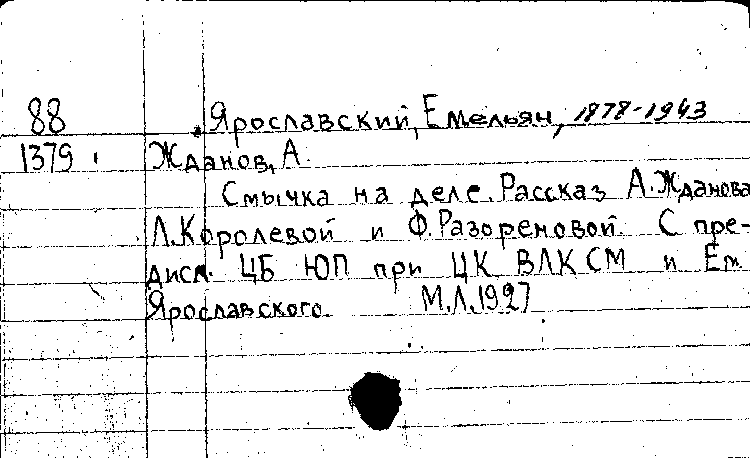 88 Ярославский, Емельян, 1878-1943
1379 Жданов, А.
Смычка на деле. Рассказ А. Жданова
Л. Королевой и Ф. Разореновой. С пре-
дисл. ЦБ ЮП при ЦК ВЛКСМ и Ем.
Ярославского. М.Л. 1927